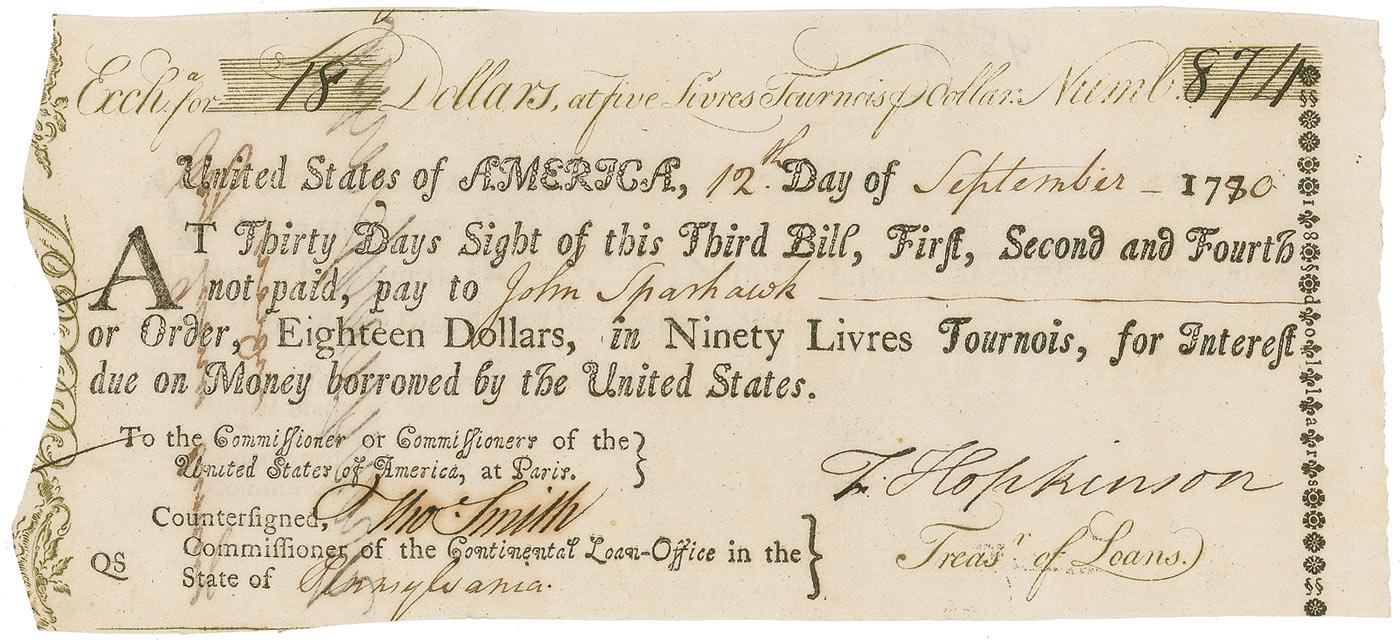 Exch.ª for 18 Dollars, at five Livres Tournois ꝑ Dollar. Numb. 874
United States of AMERICA, 12.th Day of September 1780
AT Thirty Days Sight of this Third Bill, Firſt, Second and Fourth
not paid, pay to John Sparhawk
or Order, Eighteen Dollars, in Ninety Livres Tournois, for Intereſt
due on Money borrowed by the United States.
To the Commiſſioner or Commiſſioners of the
United States of America, at Paris.
F. Hopkinson
Treasʳ of Loans.
Counterſigned, Tho.ˢ Smith
Commiſſioner of the Continental Loan-Office in the
State of Pennsylvania.
QS
18§dollars